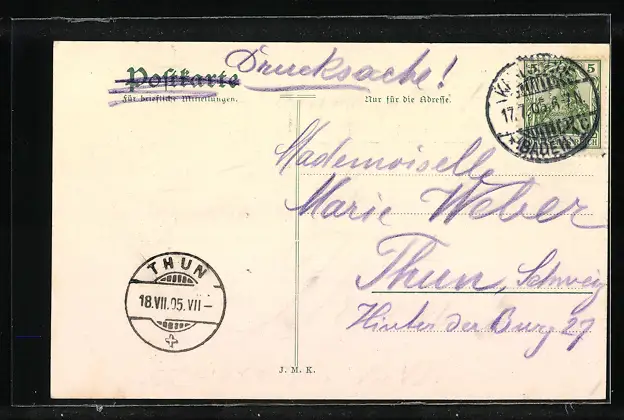 Postkarte Drucksache!
Für briefliche Mitteilungen.
Nur für die Adresse.
5
17.7.05
(BADEN)
Mademoiselle
Marie Weber
Thun, Schweiz
Hinter der Burg 27
THUN
18.VII.05.VII-
J. M. K.